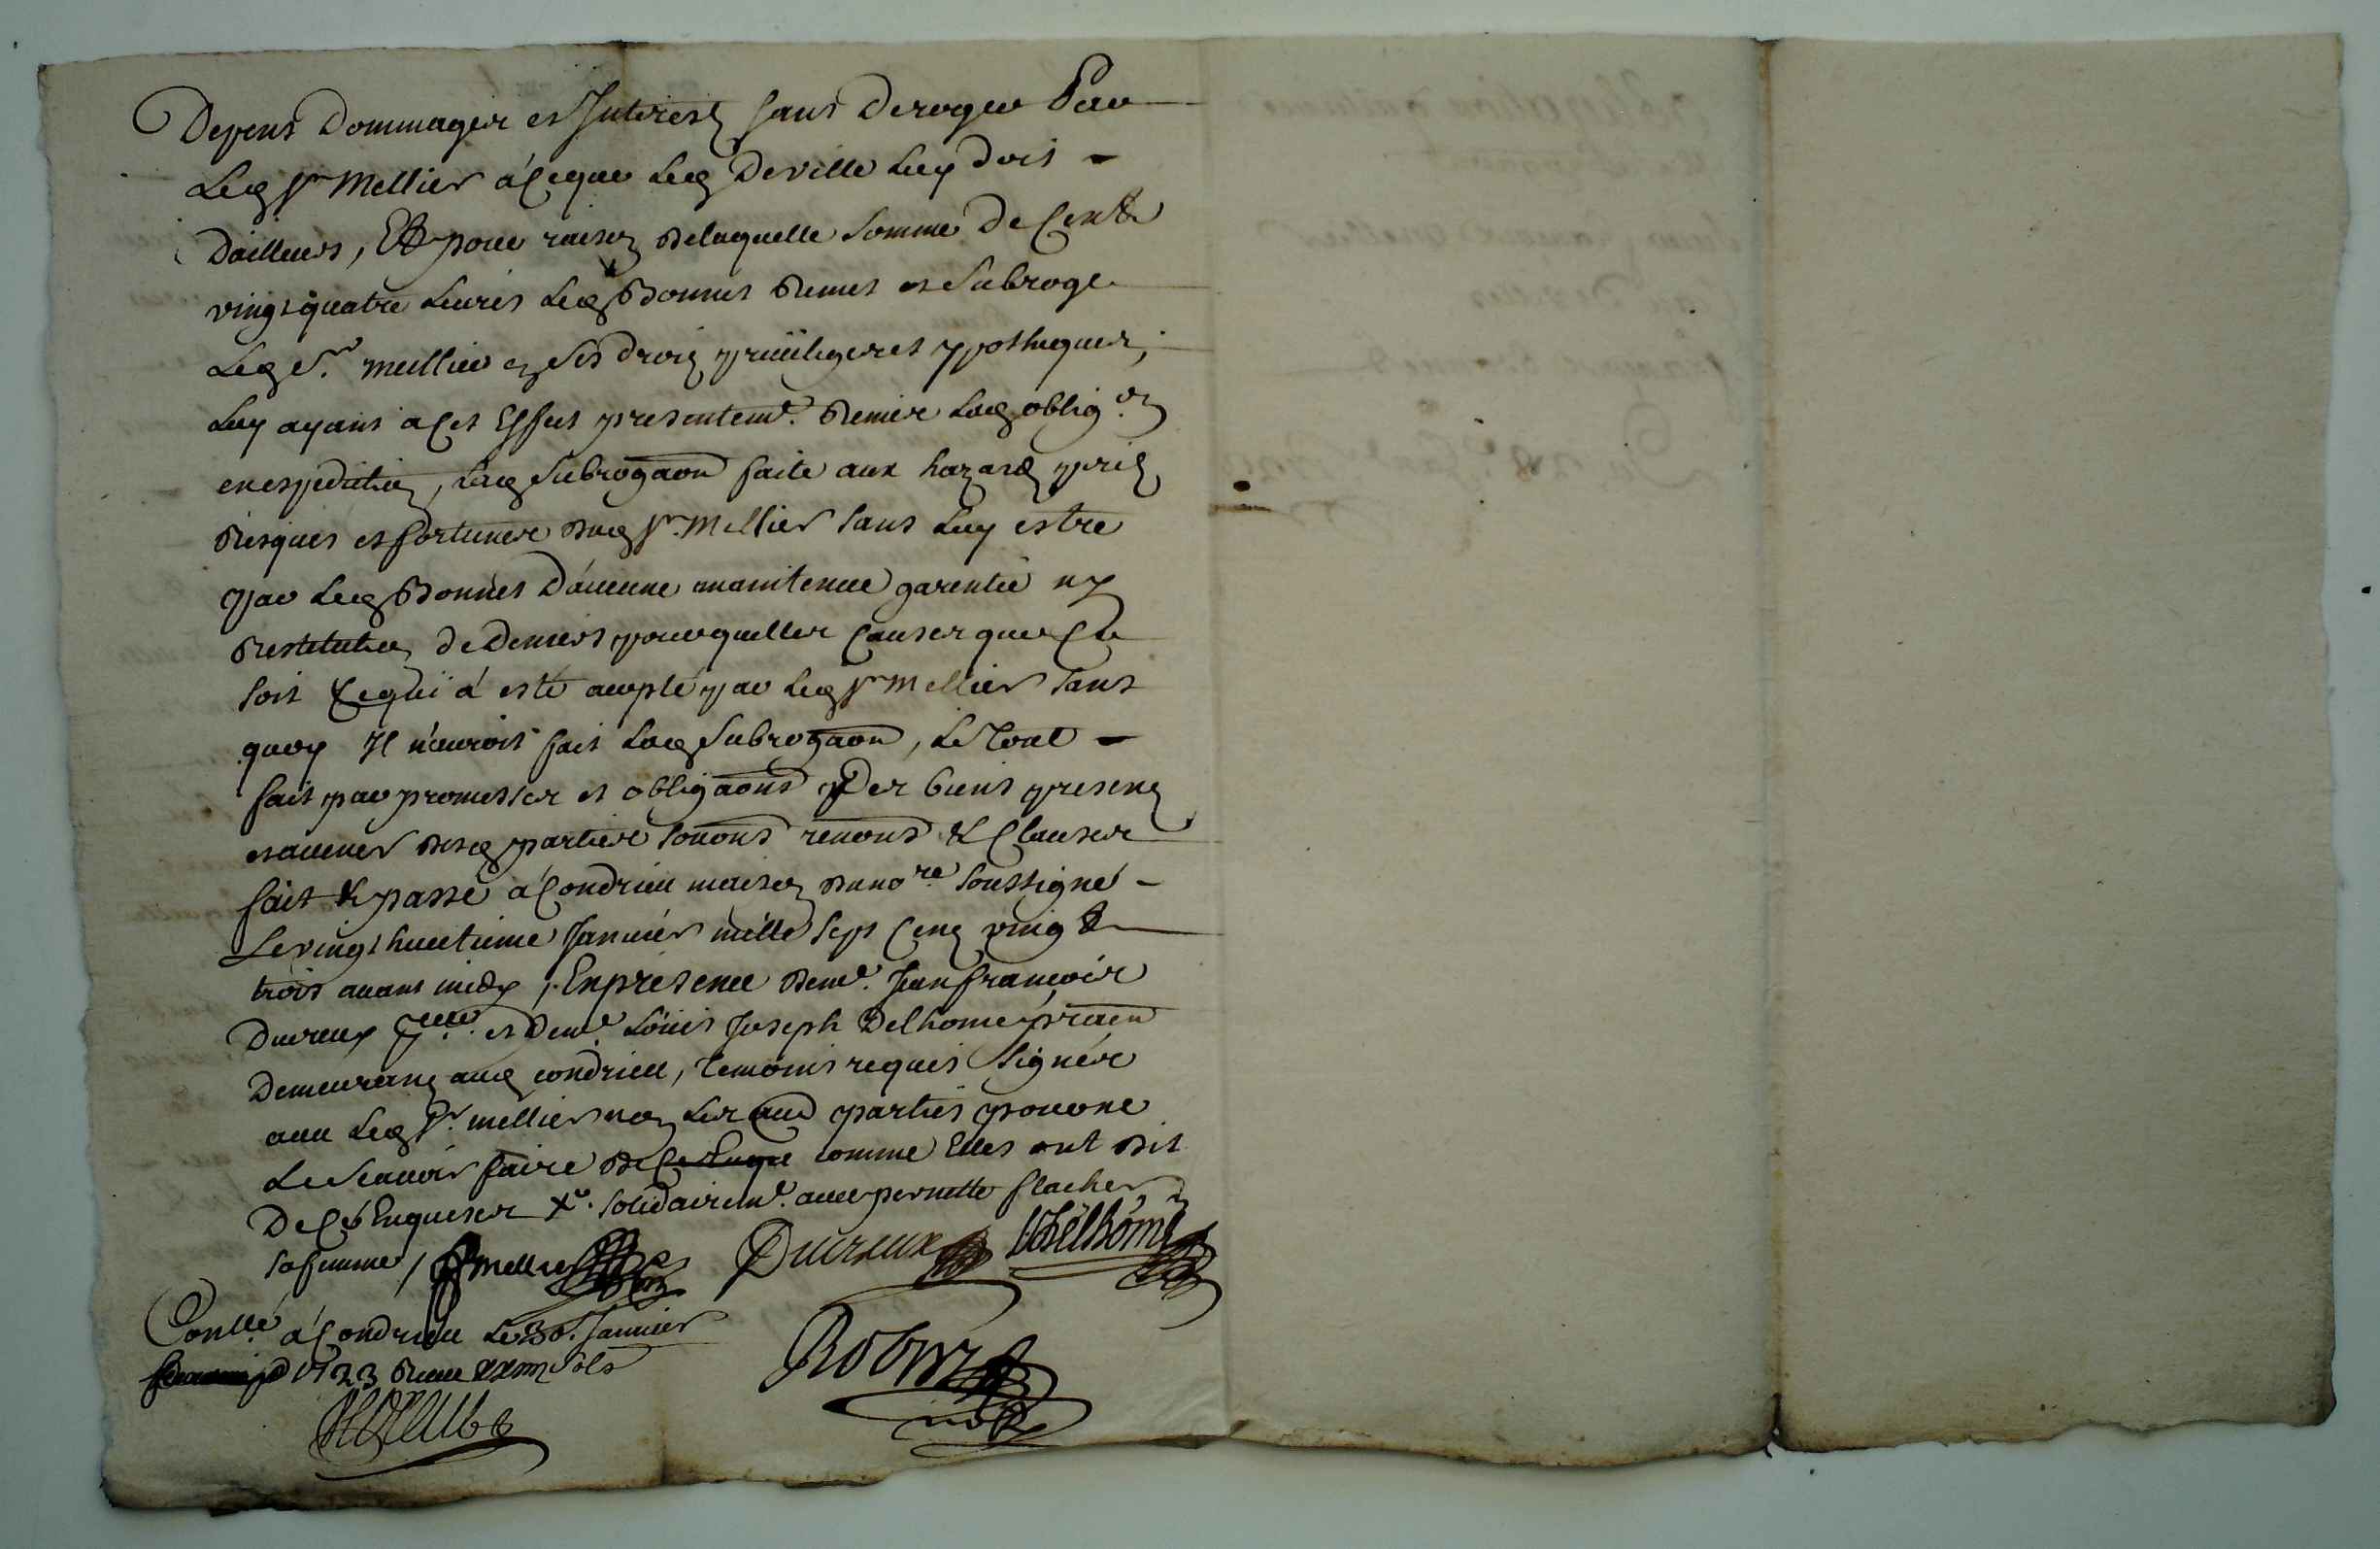 Depens Dommages et Interest sans Deroger Par
Led Sr Mellier a Ceque Led Deville Luy doit -
Dailleurs, Et pour raison delaquelle somme De Cent
vingt quatre Livres Led Bonnet Remet et Subroge
Led Sr. mellier en ses droits privileges et ypotheques,
Luy ayant a Cet Effet presentemt. Remis Lad obligon
en expedition, Lad Subrogaon faite aux hazards perils
Risques et fortunes dud Sr. Mellier sans Luy estre
par Led Bonnet D'aucune maintenue garentie ny
Restitution de Deniers pour quelles Causes que Ce
soit Cequi a esté accepté par Led Sr Mellier sans
quoy Il n'auroit fait Lad Subrogaon, Le Tout -
fait par promesses et obligaons Des biens presens
et avenir desd parties somons renons & Clauses
fait & passé a Condrieu maison du nore soussigné -
Le vingt huitieme Janvier mille sept Cens vingt
trois avant midy, En presence de me. Jean françois
Ducreux et de me Loüis Joseph Delhome praen
Demeurans aud condrieu, Temoins requis signés
avec Led Sr. mellier non Les aud parties pour ne
Le Scavoir faire de Ce Enqui comme Elles ont dit
De Ce Enquises &. solidairemt. avec pernette flacher
sa femme / Mellier Ducreux Delhome
Conllé a Condrieu Le 30. Janvier
1723 Receu sols
Robin
nore